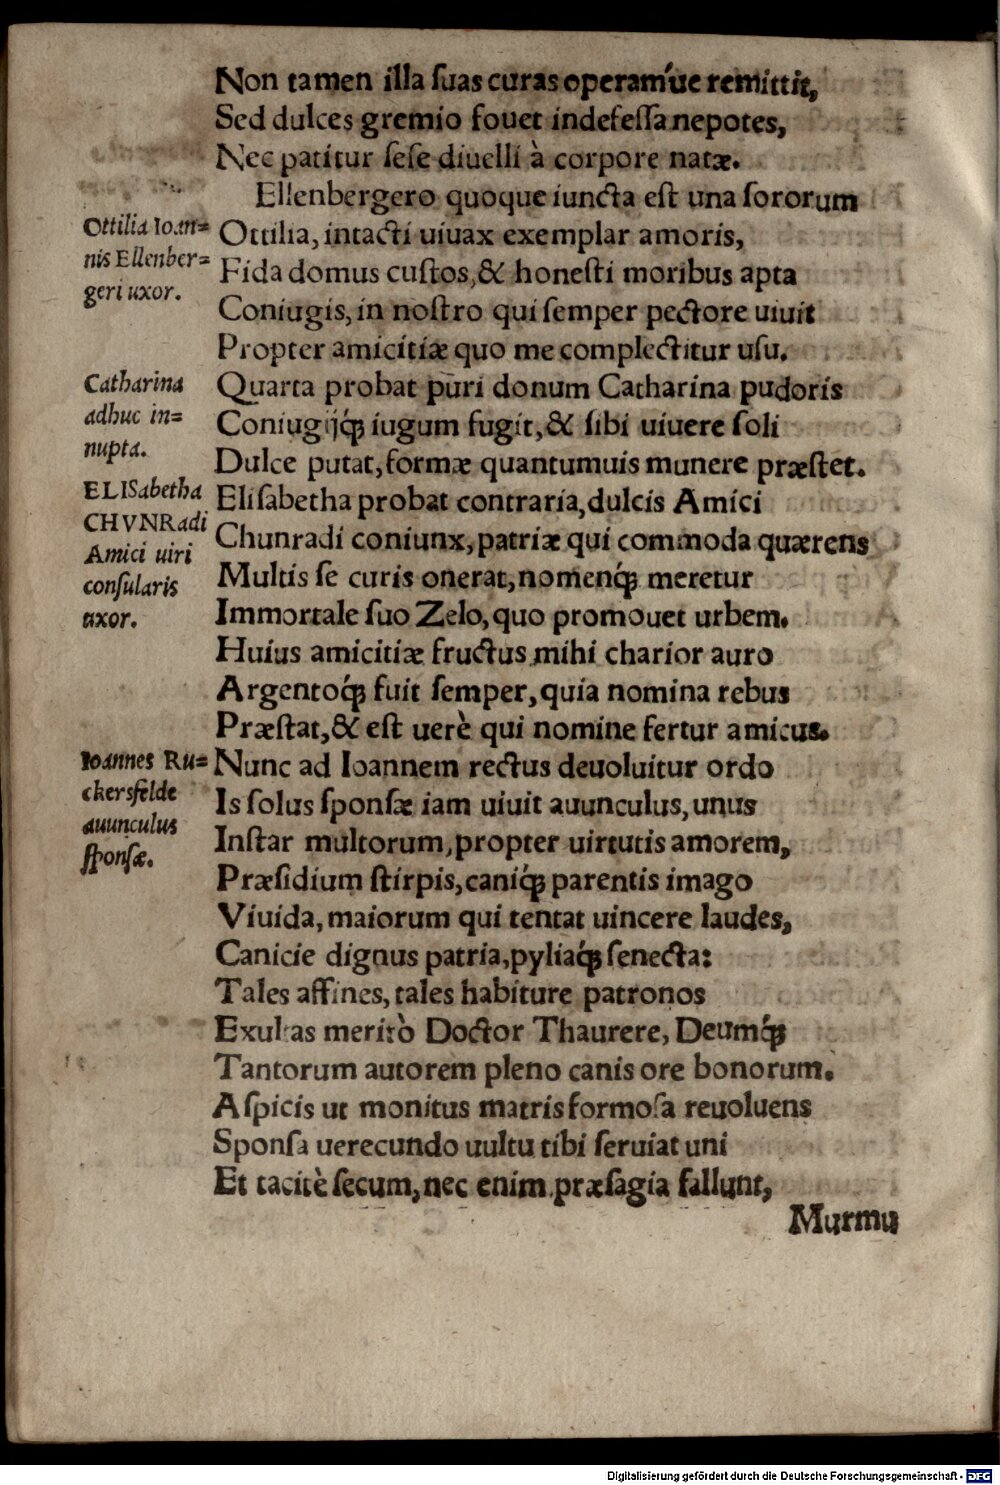 Non tamen illa ſuas curas operam'ue remittit,
Sed dulces gremio fouet indefeſſa nepotes,
Nec patitur ſeſe diuelli à corpore natæ.
Ellenbergero quoque iuncta eſt una ſororum
Ottilia Ioan=
nis Ellenber=
geri uxor.
Ottilia, intacti uiuax exemplar amoris,
Fida domus cuſtos, & honeſti moribus apta
Coniugis, in noſtro qui ſemper pectore uiuit
Propter amicitiæ quo me complectitur uſu.
Catharina
adhuc in=
nupta.
Quarta probat puri donum Catharina pudoris
Coniugijq́; iugum fugit, & ſibi uiuere ſoli
Dulce putat, formæ quantumuis munere præſtet.
ELISabetha
CHVNRadi
Amici uiri
conſularis
uxor.
Eliſabetha probat contraria, dulcis Amici
Chunradi coniunx, patriæ qui commoda quærens
Multis ſe curis onerat, nomenq́; meretur
Immortale ſuo Zelo, quo promouet urbem.
Huius amicitiæ fructus mihi charior auro
Argentoq́; fuit ſemper, quia nomina rebus
Præſtat, & eſt uerè qui nomine fertur amicus.
Ioannes Ru=
ckersfelde
auunculus
ſponſæ.
Nunc ad Ioannem rectus deuoluitur ordo
Is ſolus ſponſæ iam uiuit auunculus, unus
Inſtar multorum, propter uirtutis amorem,
Præſidium ſtirpis, caniq́; parentis imago
Viuida, maiorum qui tentat uincere laudes,
Canicie dignus patria, pyliaq́; ſenecta:
Tales affines, tales habiture patronos
Exultas meritò Doctor Thaurere, Deumq́;
Tantorum autorem pleno canis ore bonorum.
Aſpicis ut monitus matris formoſa reuoluens
Sponſa uerecundo uultu tibi ſeruiat uni
Et tacitè ſecum, nec enim præſagia fallunt,
Murmu
Digitalisierung gefördert durch die Deutsche Forschungsgemeinschaft - DFG